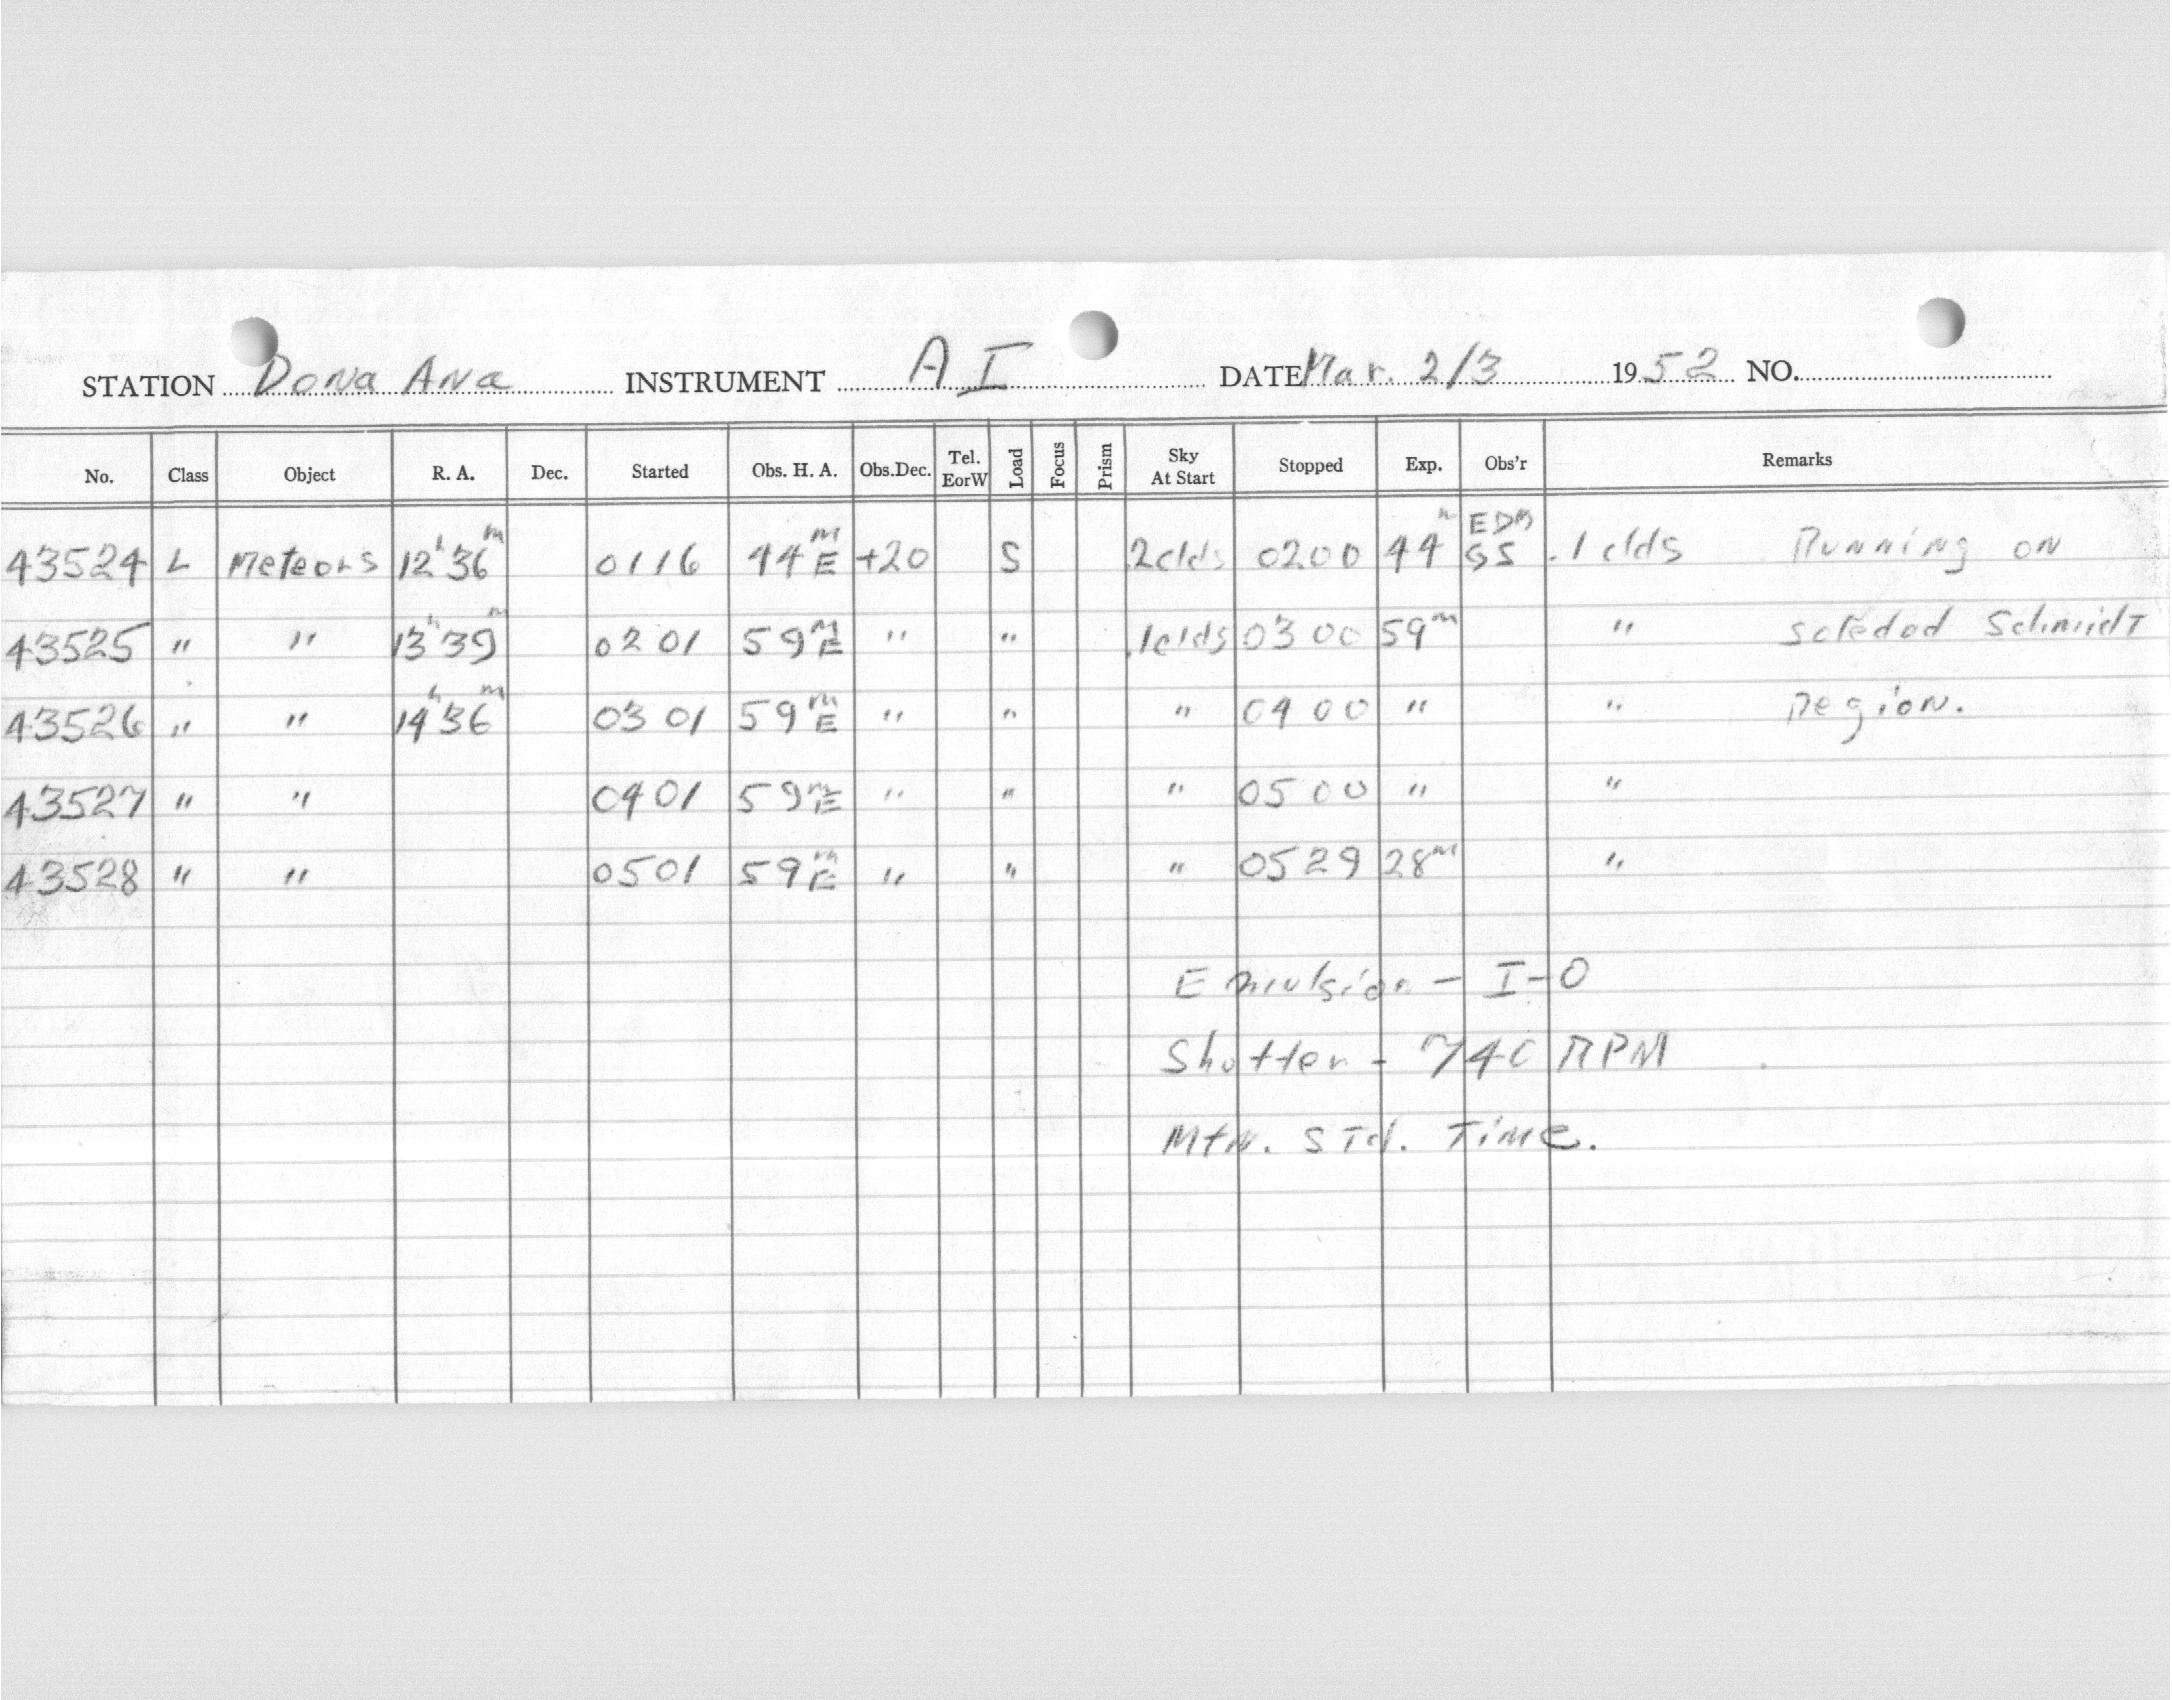 STATION Dona Ana INSTRUMENT A I DATE Mar. 2/3 1952 NO.
No. Class Object R. A. Dec. Started Obs. H. A. Obs.Dec. Tel. EorW Load Focus Prism Sky At Start Stopped Exp. Obs'r Remarks
43524 L Meteors 12h 36m 0116 44m E +20 S .2clds 0200 44m EDM GS .1 clds Running on
43525 " " 13h 39m 0201 59m E " " .1clds 0300 59m " Soledad Schmidt
43526 " " 14h 36m 0301 59m E " " " 0400 " " Region.
43527 " " 0401 59m E " " " 0500 " "
43528 " " 0501 59m E " " " 0529 28m "
Emulsion - I-O
Shutter - 740 RPM
Mtn. STd. Time.